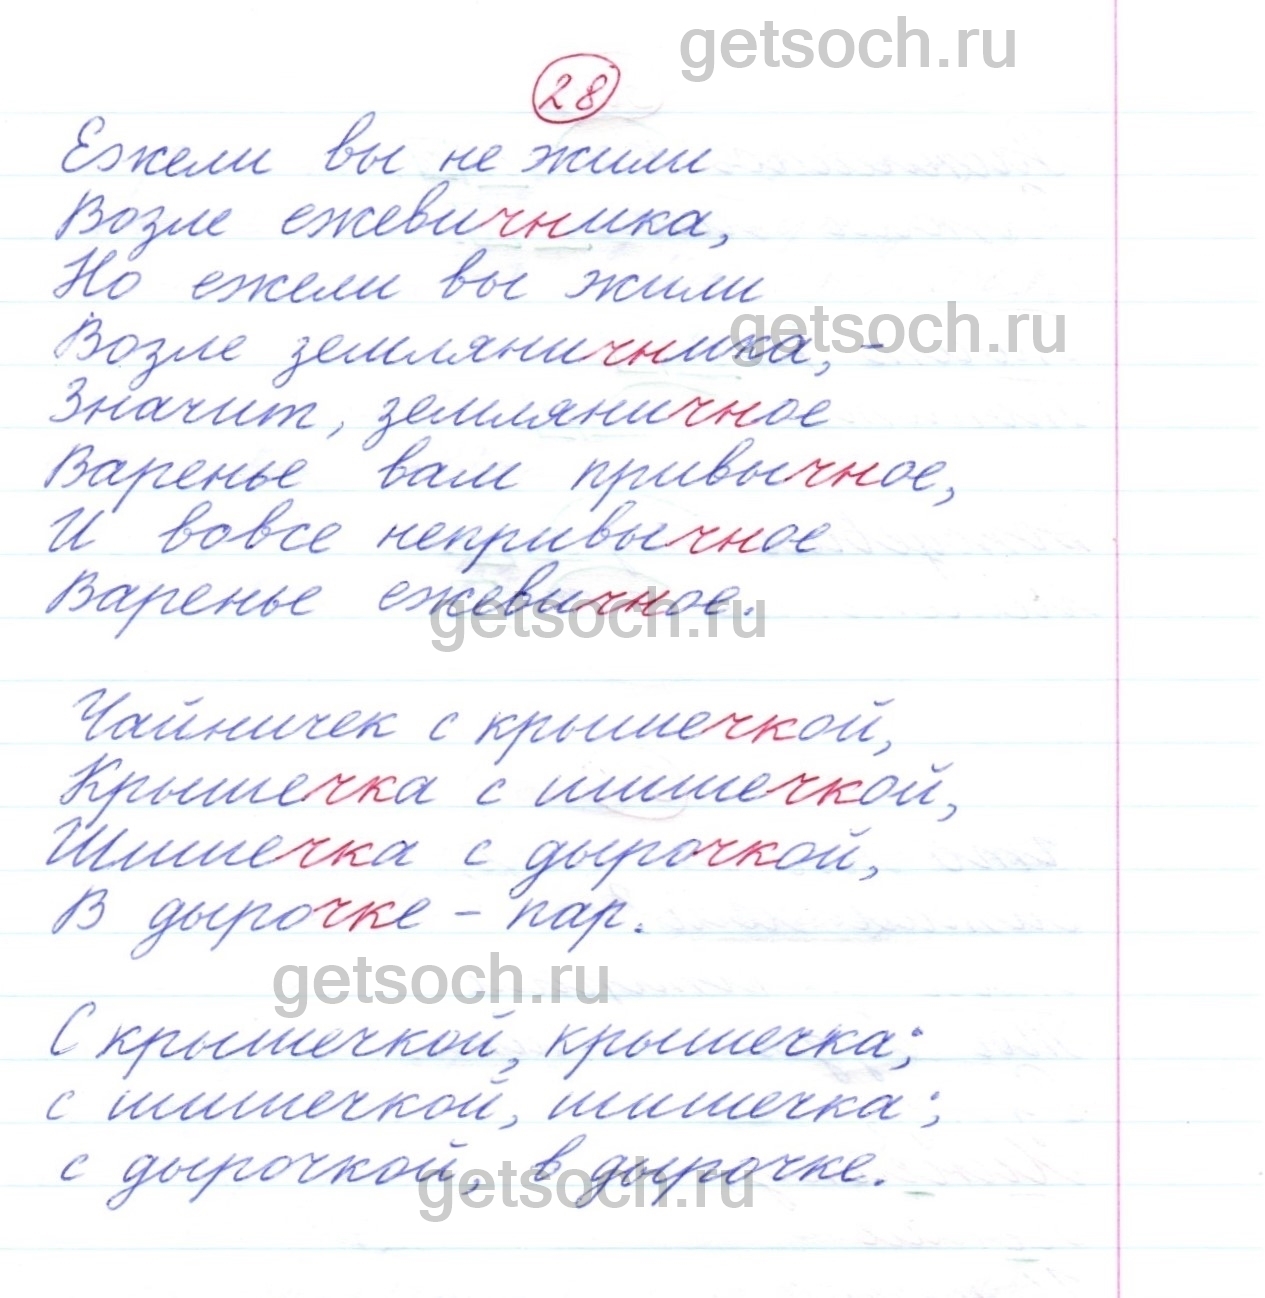 getsoch.ru
28
Ежели вы не жили
Возле ежевичника,
Но ежели вы жили
getsoch.ru
Возле земляничника, –
Значит, земляничное
Варенье вам привычное,
И вовсе непривычное
Варенье ежевичное.
getsoch.ru
Чайничек с крышечкой,
Крышечка с шишечкой,
Шишечка с дырочкой,
В дырочке – пар.
getsoch.ru
С крышечкой, крышечка;
с шишечкой, шишечка;
с дырочкой, в дырочке.
getsoch.ru